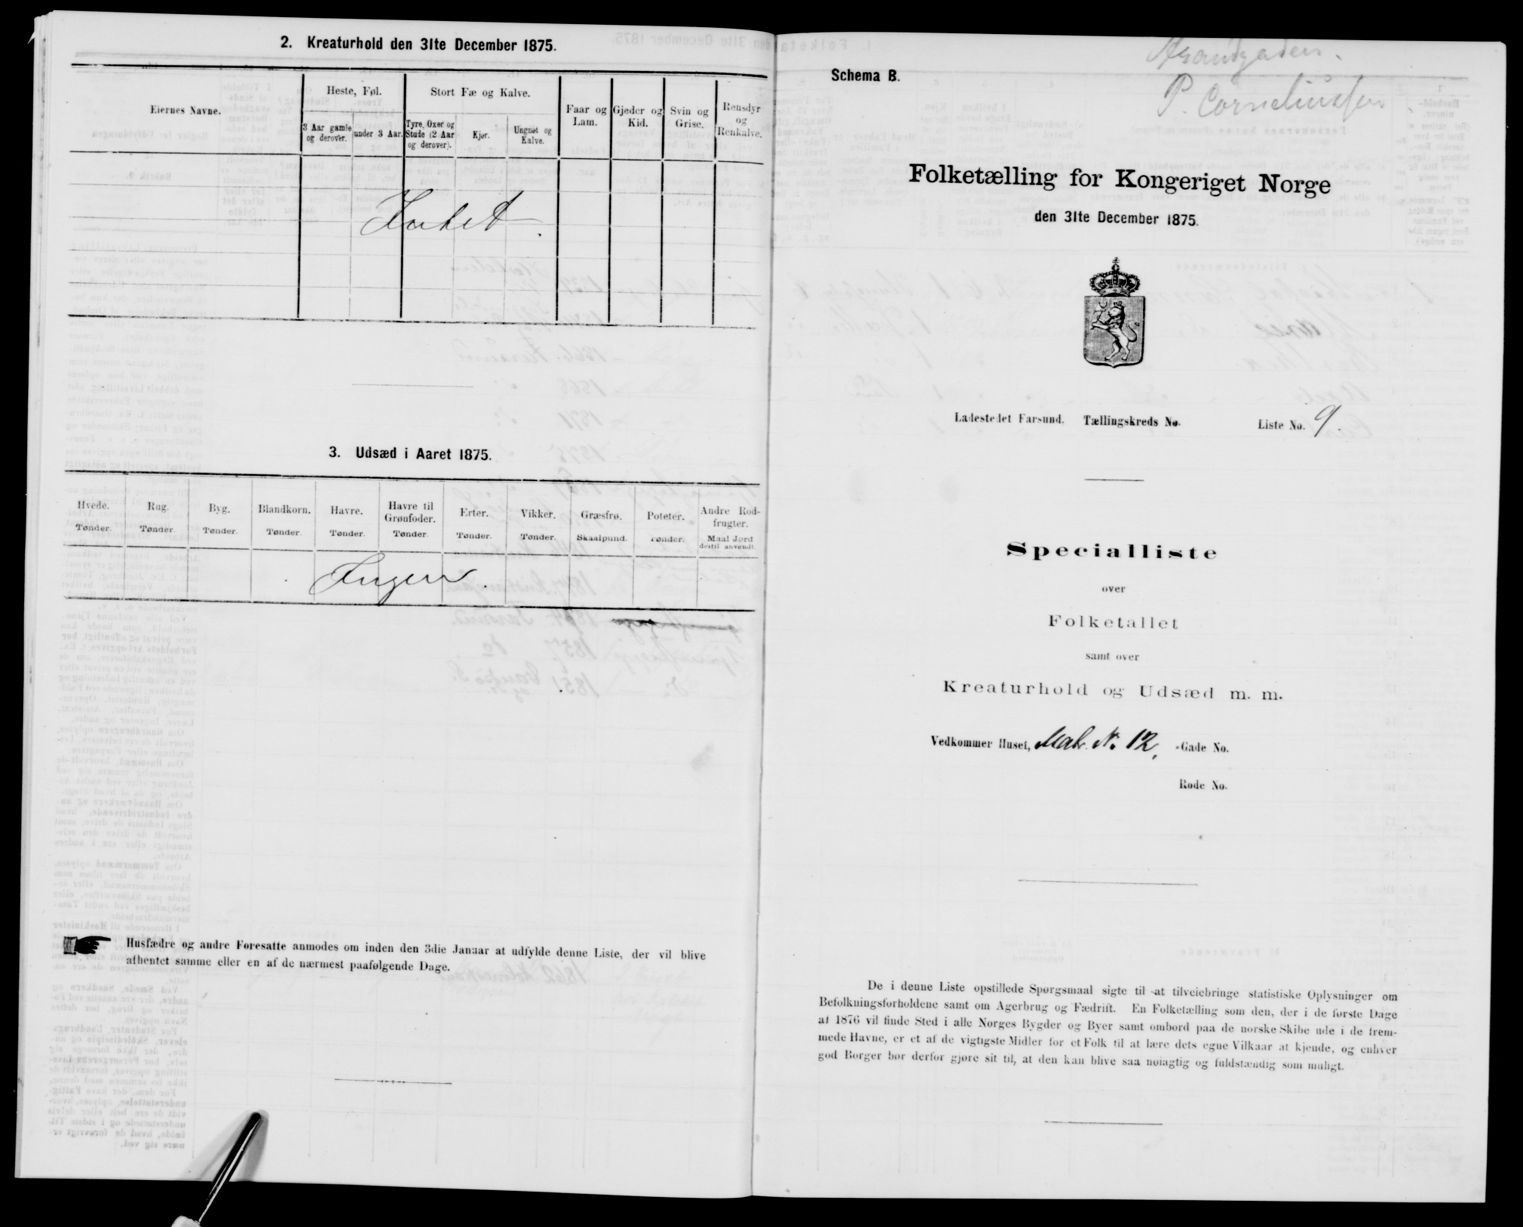 2. Kreaturhold den 31te December 1875.
Eiernes Navne.
Heste, Føl.
Stort Fæ og Kalve.
Faar og Lam.
Gjeder og Kid.
Svin og Grise.
Rensdyr og Renkalve.
3 Aar gamle og derover.
under 3 Aar.
Tyre, Oxer og Stude (2 Aar og derover).
Kjør.
Ungnøt og Kalve.
Intet.
3. Udsæd i Aaret 1875.
Hvede. Rug. Byg. Blandkorn. Havre. Havre til Grønfoder. Erter. Vikker. Græsfrø. Poteter. Andre Rodfrugter.
Tønder. Tønder. Tønder. Tønder. Tønder. Tønder. Tønder. Tønder. Skaalpund. Tønder. Maal Jord dertil anvendt.
Ingen.
Husfædre og andre Foresatte anmodes om inden den 3die Januar at udfylde denne Liste, der vil blive
afhentet samme eller en af de nærmest paafølgende Dage.
Schema B.
P. Corneliussen
Folketælling for Kongeriget Norge
den 31te December 1875.
Ladestedet Farsund. Tællingskreds No. Liste No. 9.
Specialliste
over
Folketallet
samt over
Kreaturhold og Udsæd m. m.
Vedkommer Huset, Matr. No. 12, -Gade No.
Rode No.
De i denne Liste opstillede Spørgsmaal sigte til at tilveiebringe statistiske Oplysninger om
Befolkningsforholdene samt om Agerbrug og Fædrift. En Folketælling som den, der i de første Dage
af 1876 vil finde Sted i alle Norges Bygder og Byer samt ombord paa de norske Skibe ude i de frem-
mede Havne, er et af de vigtigste Midler for et Folk til at lære dets egne Vilkaar at kjende, og enhver
god Borger bør derfor gjøre sit til, at den kan blive saa nøiagtig og fuldstændig som muligt.